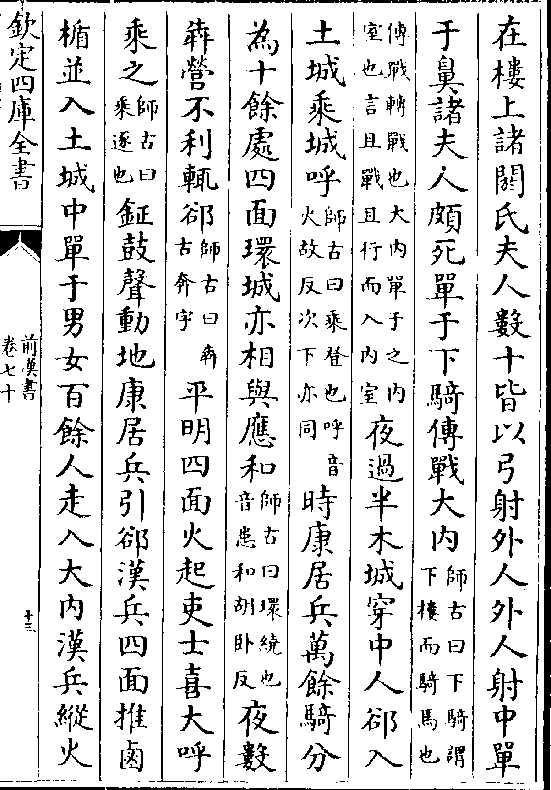 在樓上諸閼氏夫人數十皆以弓射外人外人射中單
于鼻諸夫人頗死單于下騎傳戰大内師古曰下騎謂下樓而騎馬也
傳戰轉戰也大内單于之内室也言且戰且行而入内室夜過半木城穿中人郤入
土城乘城呼師古曰乘登也呼音火故反次下亦同時康居兵萬餘騎分
為十餘處四面環城亦相與應和師古曰環繞也音患和胡卧反夜數
犇營不利輒郤師古曰犇古奔字平明四面火起吏士喜大呼
乘之師古曰乘逐也鉦鼓聲動地康居兵引郤漢兵四面推鹵
楯並入土城中單于男女百餘人走入大内漢兵縱火
欽定四庫全書
前漢書
卷七十
十三